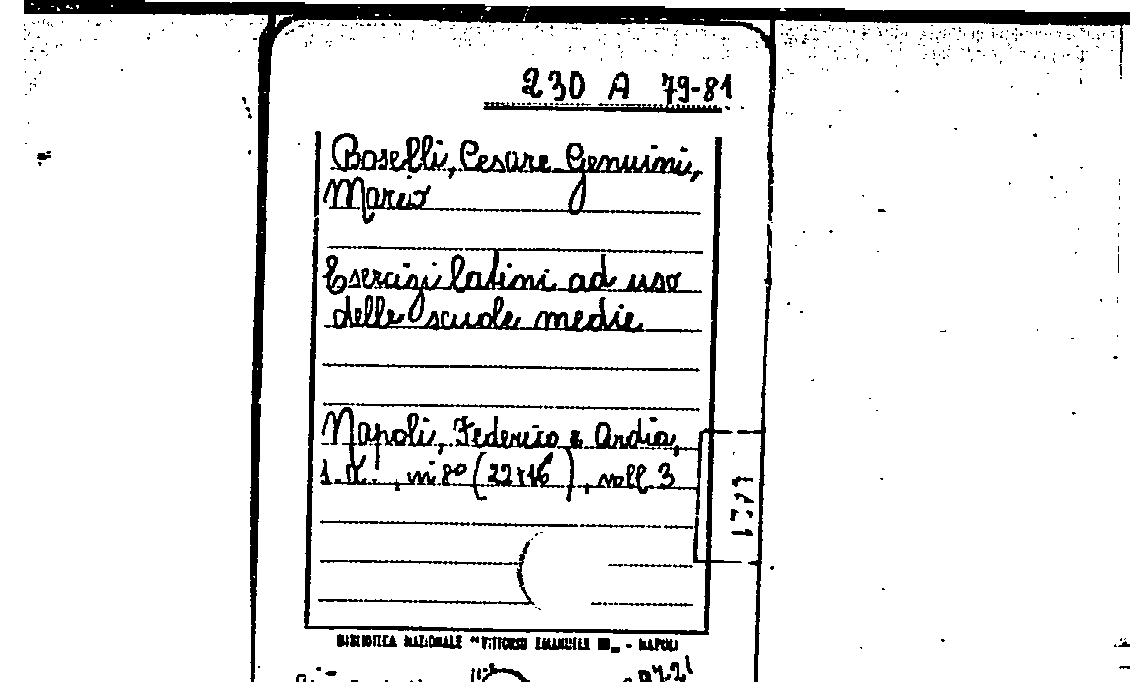 230 A 79-81
Boselli, Cesare Genuini,
Mario
Esercizi latini ad uso
delle scuole medie
Napoli, Federico & Ardia,
in 8° (22x16), voll 3
BIBLIOTECA NAZIONALE "VITTORIO EMANUELE III" - NAPOLI